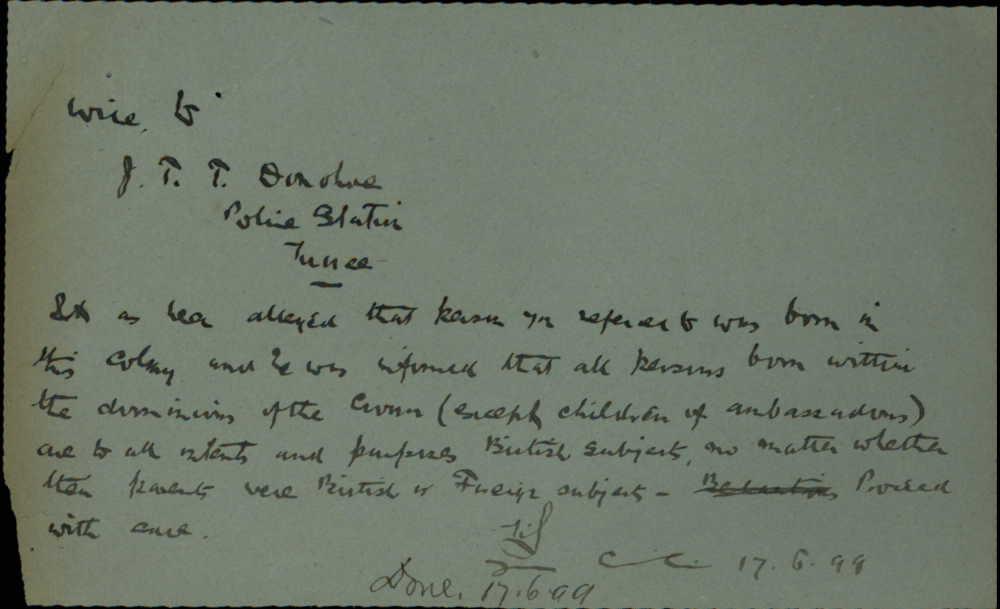 Wire to
J. T. T. Donohue
Police Station
It was here alleged that person you referred to was born in
this Colony and he was informed that all persons born within
the dominions of the Crown (except children of ambassadors)
are to all intents and purposes British subjects, no matter whether
their parents were British or Foreign subjects - Proceed
with care.
C. C. 17.6.99
Done. 17.6.99